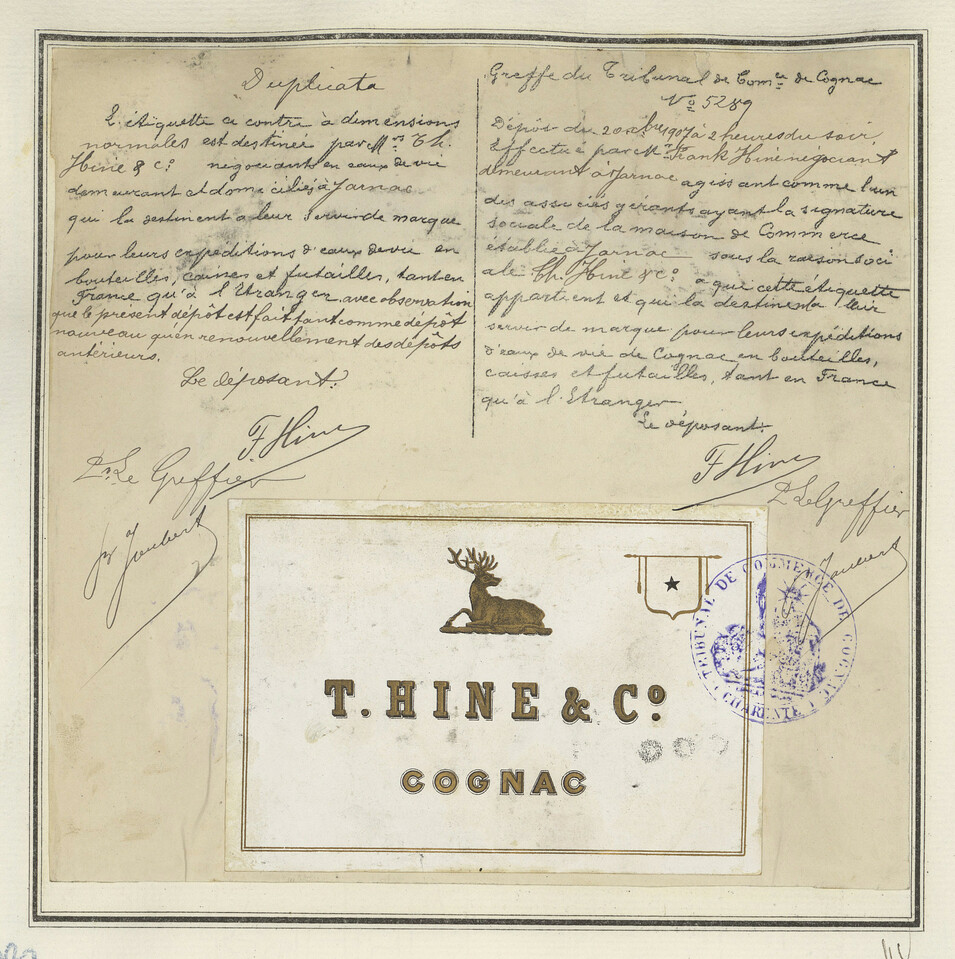 Duplicata
L'étiquette ci contre à dimensions
normales est destinée par Mrs Th.
Hine & Co. négociants en eaux de vie
demeurant et domiciliés à Jarnac
qui la destinent a leur servir de marque
pour leurs expéditions d'eaux de vie en
bouteilles, caisses et futailles, tant en
France qu'à l'Etranger, avec observation
que le présent dépôt est fait tant comme dépôt
nouveau qu'en renouvellement des dépôts
antérieurs.
Le déposant.
F Hine
Pr. Le Greffier
Joubert
Greffe du Tribunal de Comce de Cognac
No 5289
Dépôt du 20 1907 à 2 heures du soir,
Effectué par Mr Frank Hine négociant
demeurant à Jarnac agissant comme l'un
des associés gérants ayant la signature
sociale de la maison de Commerce
établie à Jarnac sous la raison soci
ale Th. Hine & Co. a qui cette étiquette
appartient et qui la destine à leur
servir de marque pour leurs expéditions
d'eaux de vie de Cognac en bouteilles,
caisses et futailles, tant en France
qu'à l'Etranger
Le déposant.
F Hine
Pr Le Greffier
Joubert
T. HINE & Co.
COGNAC
TRIBUNAL DE COMMERCE DE COGNAC
CHARENTE